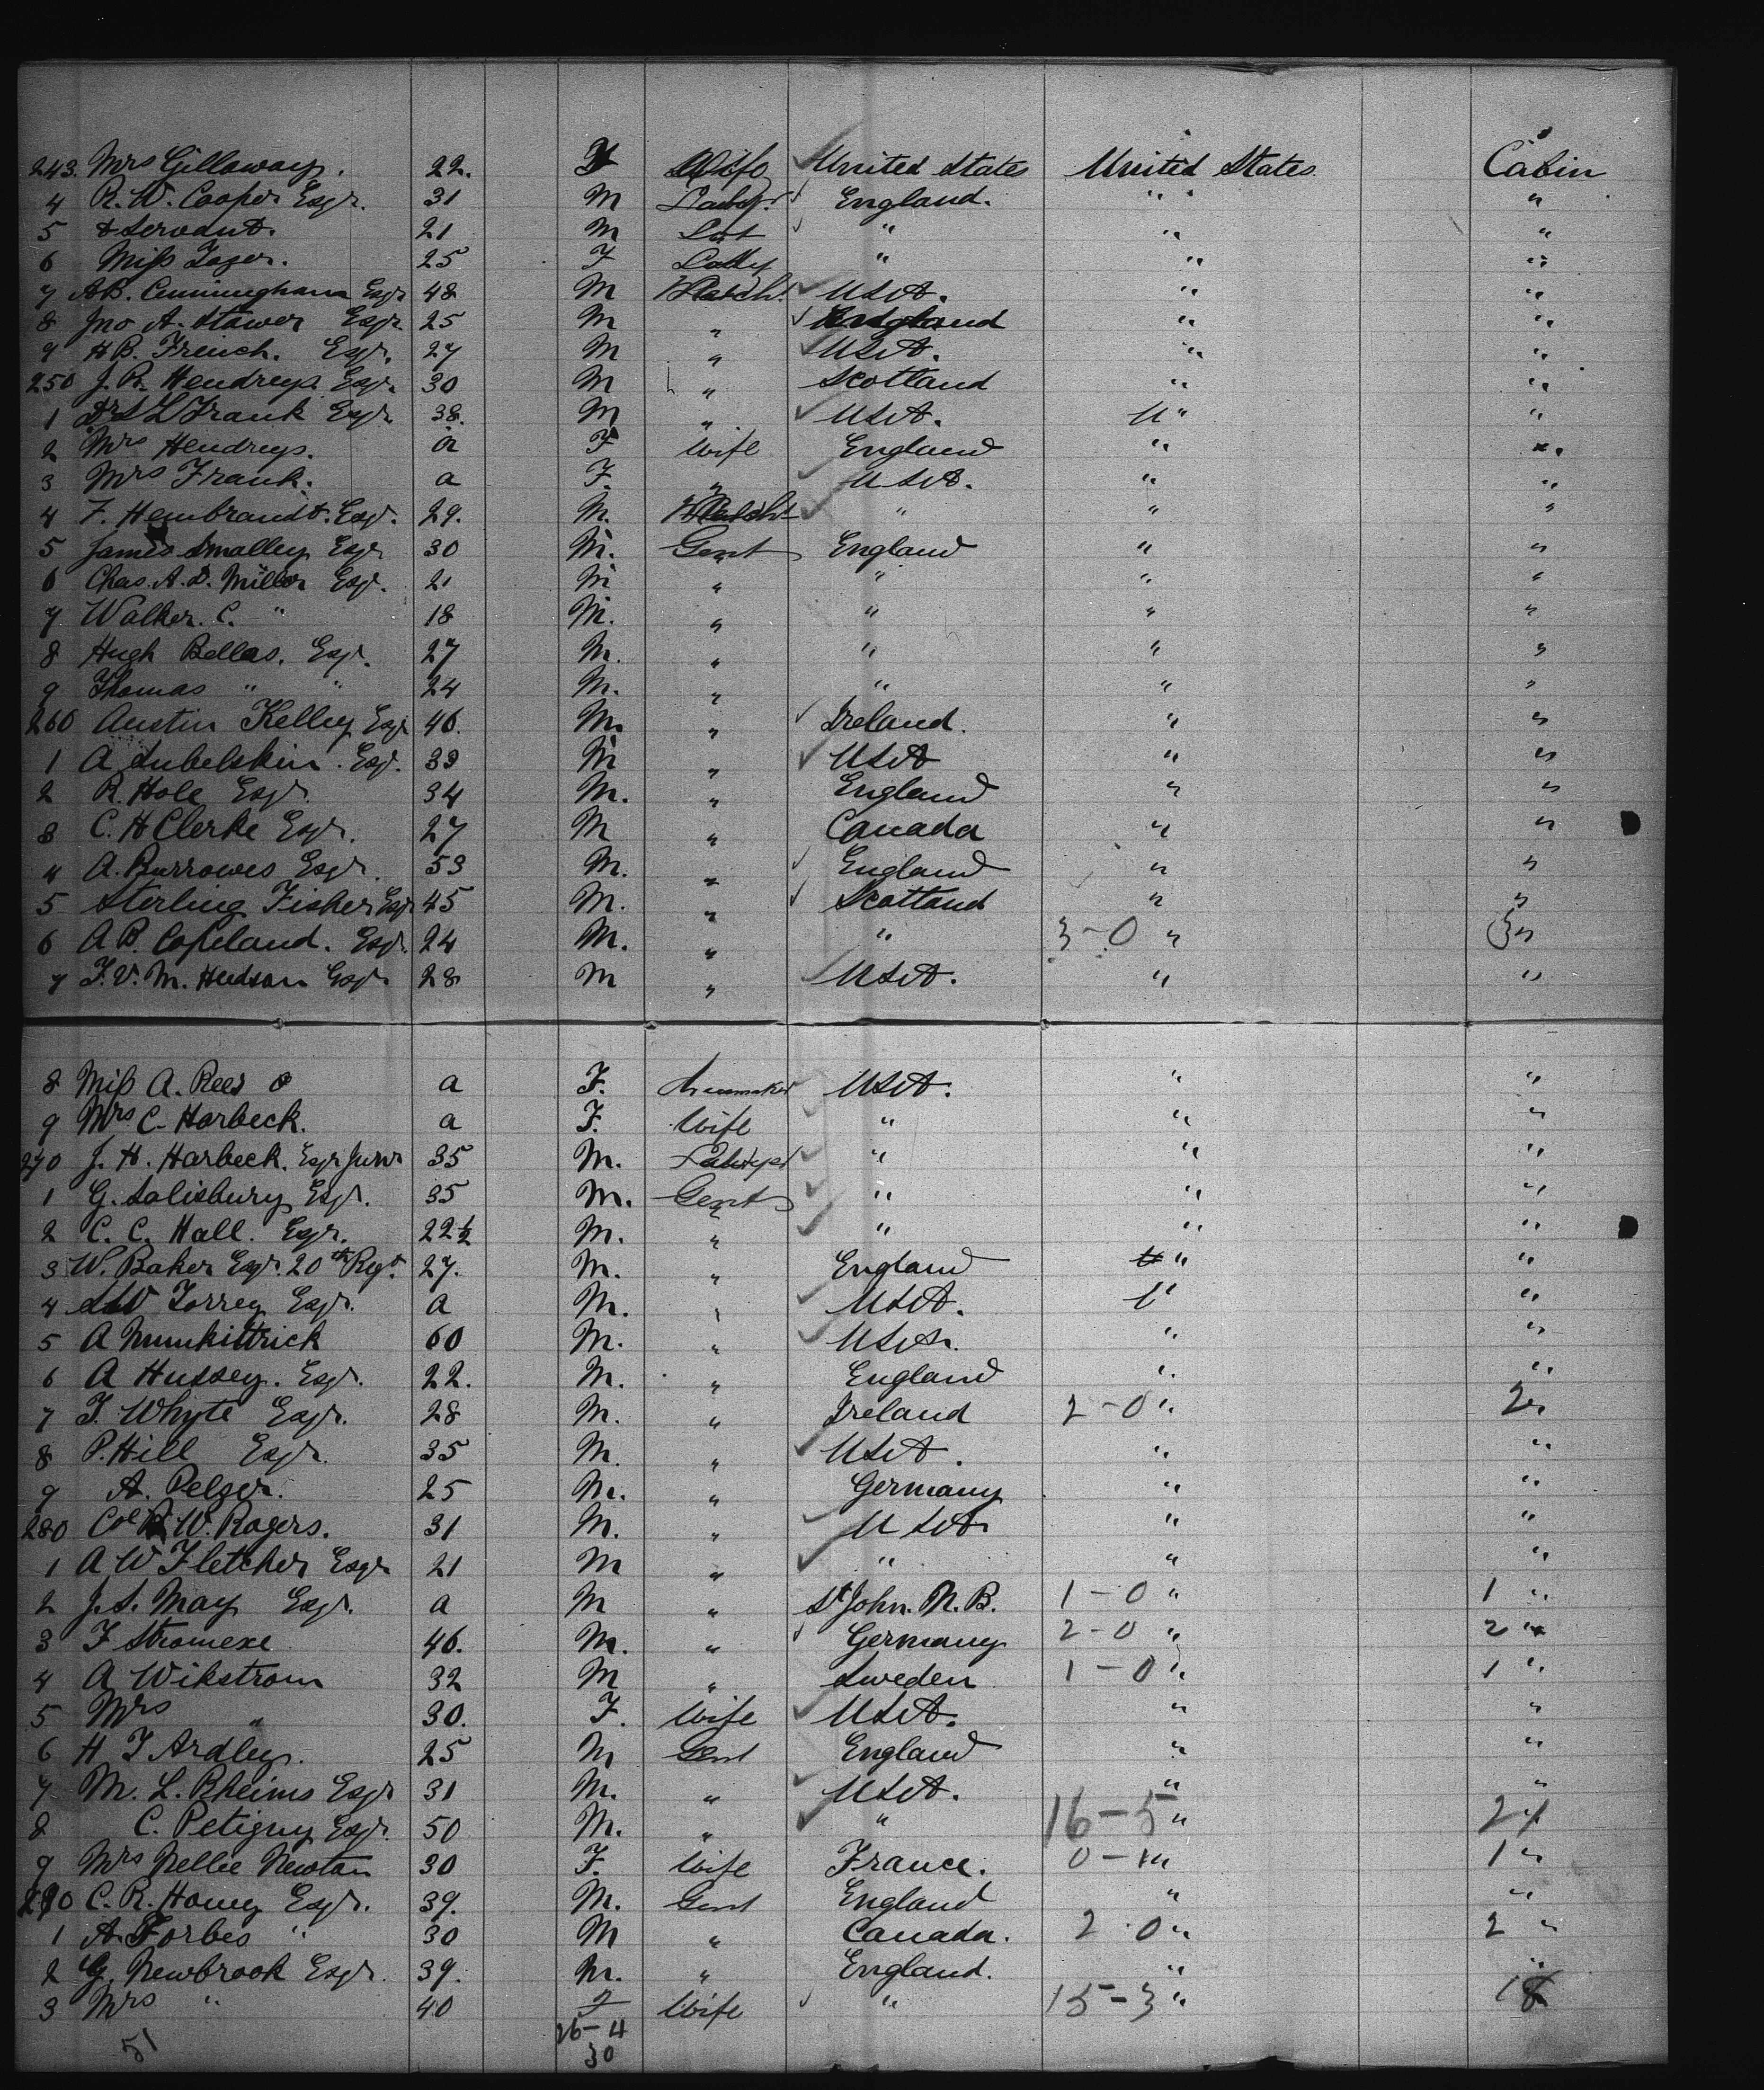 243. Mrs Gilloway. 22. F Wife United States United States Cabin
4 R. W. Cooper Esqr. 31 M England. " "
5 & Servant. 21 M " " "
6 Miss Tozer. 25 F Lady " " "
7 A B. Cunningham Esqr 48 M Mercht. U S A. " "
8 Jno A. Stower Esqr 25 M " England " "
9 H B. French. Esqr. 27 M " U S A. " "
250 J. B. Hendreys Esqr. 30 M " Scotland " "
1 L Frank Esqr 38. M " U S A. " "
2 Mrs Hendreys. a F Wife England " "
3 Mrs Frank. a F. " U S A. " "
4 F. Hembrandt. Esqr. 29. M. Mercht " " "
5 James Smalley Esqr 30 M. Gent England " "
6 Chas. A. D. Miller Esqr. 21 M " " " "
7 Walker. C. " 18 M. " " " "
8 Hugh Bellas. Esqr. 27 M. " " " "
9 Thomas " " 24 M. " " " "
260 Austin Kelley Esqr 46. M. " Ireland. " "
1 A Lubelskin. Esqr. 33 M " U S A " "
2 R. Hole Esqr. 34 M. " England " "
3 C. H Clerke Esqr. 27 M " Canada " "
4 A. Burrowes Esqr. 53 M. " England " "
5 Sterling Fisher Esqr 45 M. " Scotland " "
6 A B. Copeland. Esqr. 24 M. " " 3-0 " 3 "
7 F. V. M. Hudson Esqr 28 M " U S A. " "
8 Miss A. Rees a F. U S A. " "
9 Mrs C. Harbeck. a F. Wife " " "
270 J. H. Harbeck. Esqr Junr 35 M. " " "
1 G. Salisbury Esqr. 35 M. Gent " " "
2 C. C. Hall. Esqr. 22½ M. " " " "
3 W. Baker Esqr. 20th Regt. 27. M. " England " "
4 Torrey Esqr. a M. " U S A. " "
5 A Munkittrick 60 M. " U S A. " "
6 A Hussey. Esqr. 22. M. " England " "
7 T. Whyte Esqr. 28 M. " Ireland 2-0 " 2 "
8 P. Hill Esqr. 35 M. " U S A. " "
9 A. Pelzer. 25 M. " Germany " "
280 Col W. Rogers. 31 M. " U S A " "
1 A W Fletcher Esqr 21 M " " " "
2 J. S. May Esqr. a M " St John. N. B. 1-0 " 1 "
3 F Stromexe 46. M. " Germany 2-0 " 2 "
4 A Wikstrom 32 M " Sweden 1-0 " 1 "
5 Mrs " 30. F. Wife U S A. " "
6 H T Ardley. 25 M Gent England " "
7 M. L. Rheims Esqr 31 M. " U S A. " "
8 C. Petigny Esqr. 50 M. " " 16-5 " 21
9 Mrs Nellie Newton 30 F. Wife France. 0-1 " 1 "
290 C. R. Homey Esqr. 39. M. Gent England " "
1 A. Forbes " 30 M " Canada. 2-0 " 2 "
2 G. Newbrook Esqr. 39. M. " England. " "
3 Mrs " 40 F Wife " 15-3 " 18
51 26-4
30